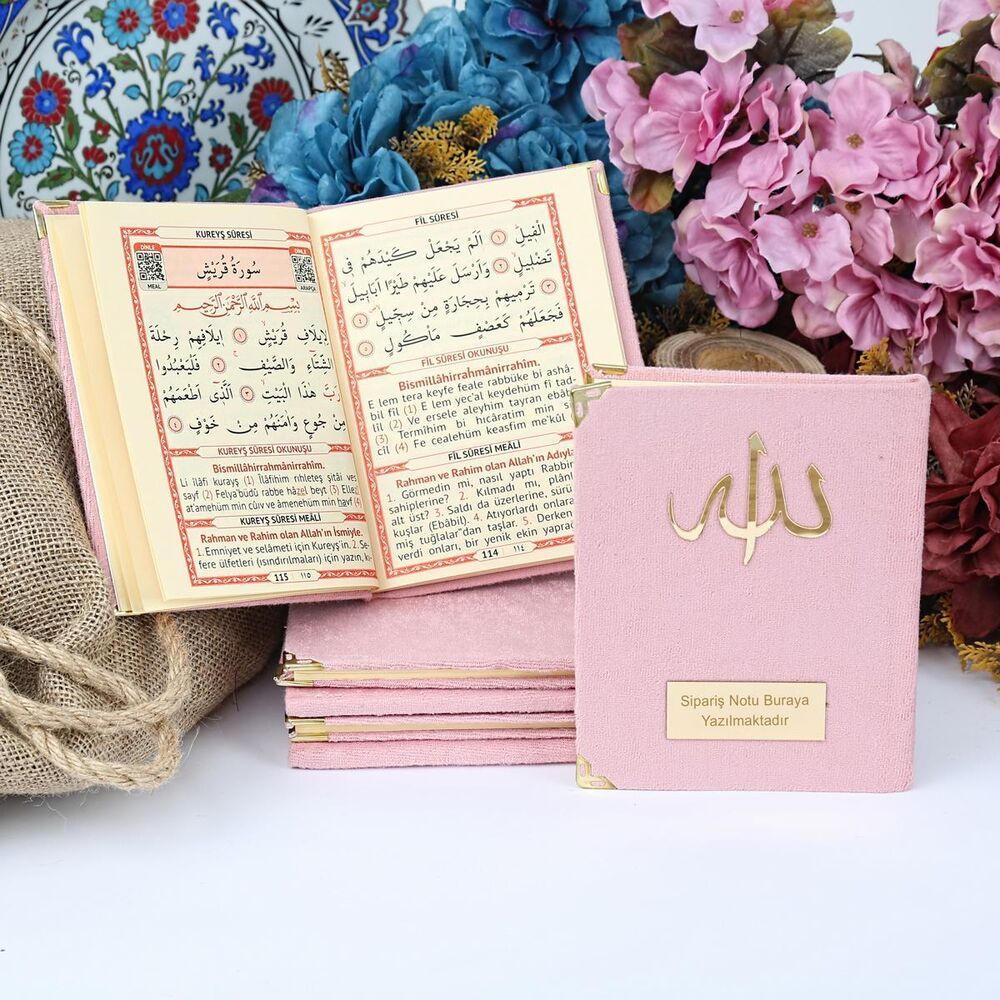 KUREYŞ SÛRESİ
DİNLE
MEAL
سُورَةُ قُرَيْشٍ
DİNLE
ARAPÇA
بِسْمِ اللّٰهِ الرَّحْمٰنِ الرَّحِيمِ
لِاِيلَافِ قُرَيْشٍ ﴿١﴾ اِيلَافِهِمْ رِحْلَةَ
الشِّتَٓاءِ وَالصَّيْفِ ﴿٢﴾ فَلْيَعْبُدُوا
رَبَّ هٰذَا الْبَيْتِ ﴿٣﴾ اَلَّذٖٓى اَطْعَمَهُمْ
مِنْ جُوعٍ وَاٰمَنَهُمْ مِنْ خَوْفٍ ﴿٤﴾
KUREYŞ SÛRESİ OKUNUŞU
Bismillâhirrahmânirrahîm.
Li îlâfi kurayş (1) Îlâfihim rihleteş şitâi ves
sayf (2) Felya'büdû rabbe hâzel beyt (3) Ellez
at'amehüm min cûıv ve âmenehüm min havf (4)
KUREYŞ SÛRESİ MEÂLİ
Rahman ve Rahim olan Allah'ın İsmiyle.
1. Emniyet ve selâmeti için Kureyş'in. 2. Se-
fere ülfetleri (ısındırılmaları) için yazın, kı
115 ١١٥
FİL SÛRESİ
الْفٖيلِ ﴿١﴾ اَلَمْ يَجْعَلْ كَيْدَهُمْ فٖى
تَضْلٖيلٍ ﴿٢﴾ وَاَرْسَلَ عَلَيْهِمْ طَيْرًا اَبَابٖيلَ
﴿٣﴾ تَرْمٖيهِمْ بِحِجَارَةٍ مِنْ سِجّٖيلٍ ﴿٤﴾
فَجَعَلَهُمْ كَعَصْفٍ مَأْكُولٍ ﴿٥﴾
FİL SÛRESİ OKUNUŞU
Bismillâhirrahmânirrahîm.
E lem tera keyfe feale rabbüke bi ashâ-
bil fîl (1) E lem yec'al keydehüm fî tad-
lîl (2) Ve ersele aleyhim tayran ebâb
(3) Termîhim bi hıcâratim min si
cîl (4) Fe cealehüm keasfim me'kûl
FİL SÛRESİ MEÂLİ
Rahman ve Rahim olan Allah'ın Adıyla
1. Görmedin mi, nasıl yaptı Rabbin
sahiplerine? 2. Kılmadı mı, plânl
alt üst? 3. Saldı da üzerlerine, sürü
kuşlar (Ebâbil). 4. Atıyorlardı onlara
miş tuğlalar'dan taşlar. 5. Derken
verdi onları, bir yenik ekin yaprağ
114 ١١٤
الله
Sipariş Notu Buraya
Yazılmaktadır